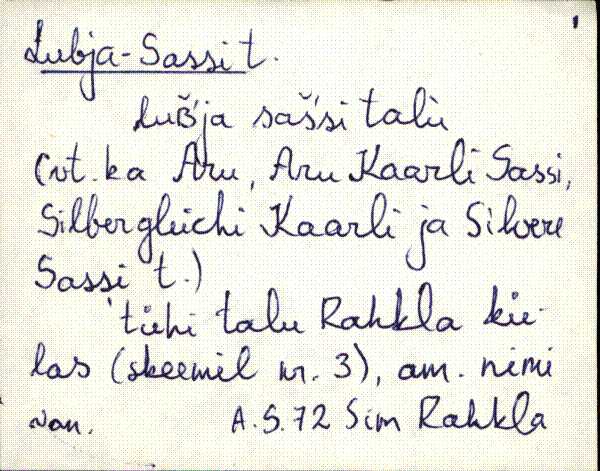 1
Lubja-Sassi t.
Lub̆'ja saš'si talù
(vt. ka Aru, Aru Kaarli Sassi,
Silbergleichi Kaarli ja Silvere
Sassi t.)
'tühi talu Rahkla kü-
las (skeemil nr. 3), am. nimi
van. A.S.72 Sim Rahkla